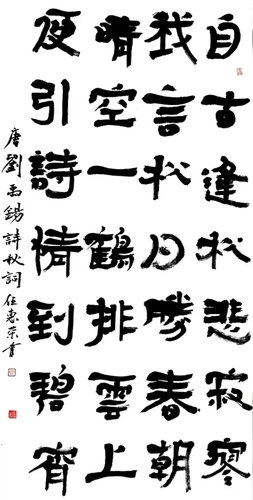 自古逢秋悲寂寥
我言秋日勝春朝
晴空一鶴排雲上
便引詩情到碧霄
唐劉禹錫詩秋詞任惠荣書